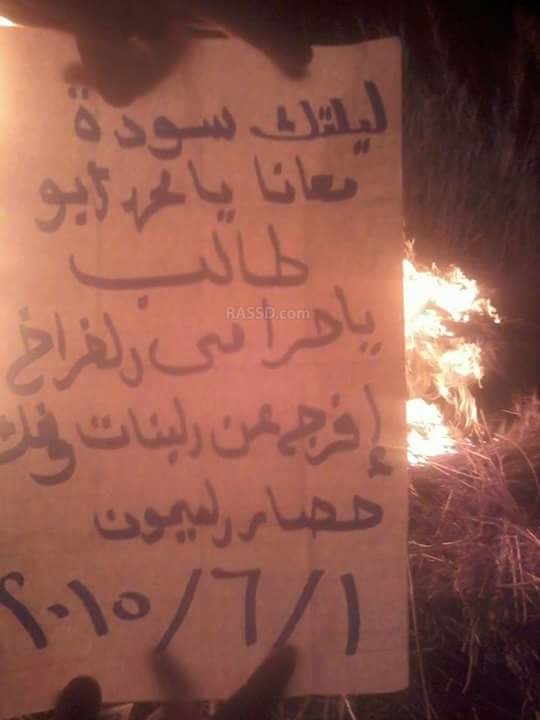 ليلتك سودة
معانا يا محمد أبو
طالب
RASSD.com
ياحرامى الفراخ
إفرج عن البنات وفك
حصار الميمون
٢٠١٥/٦/١